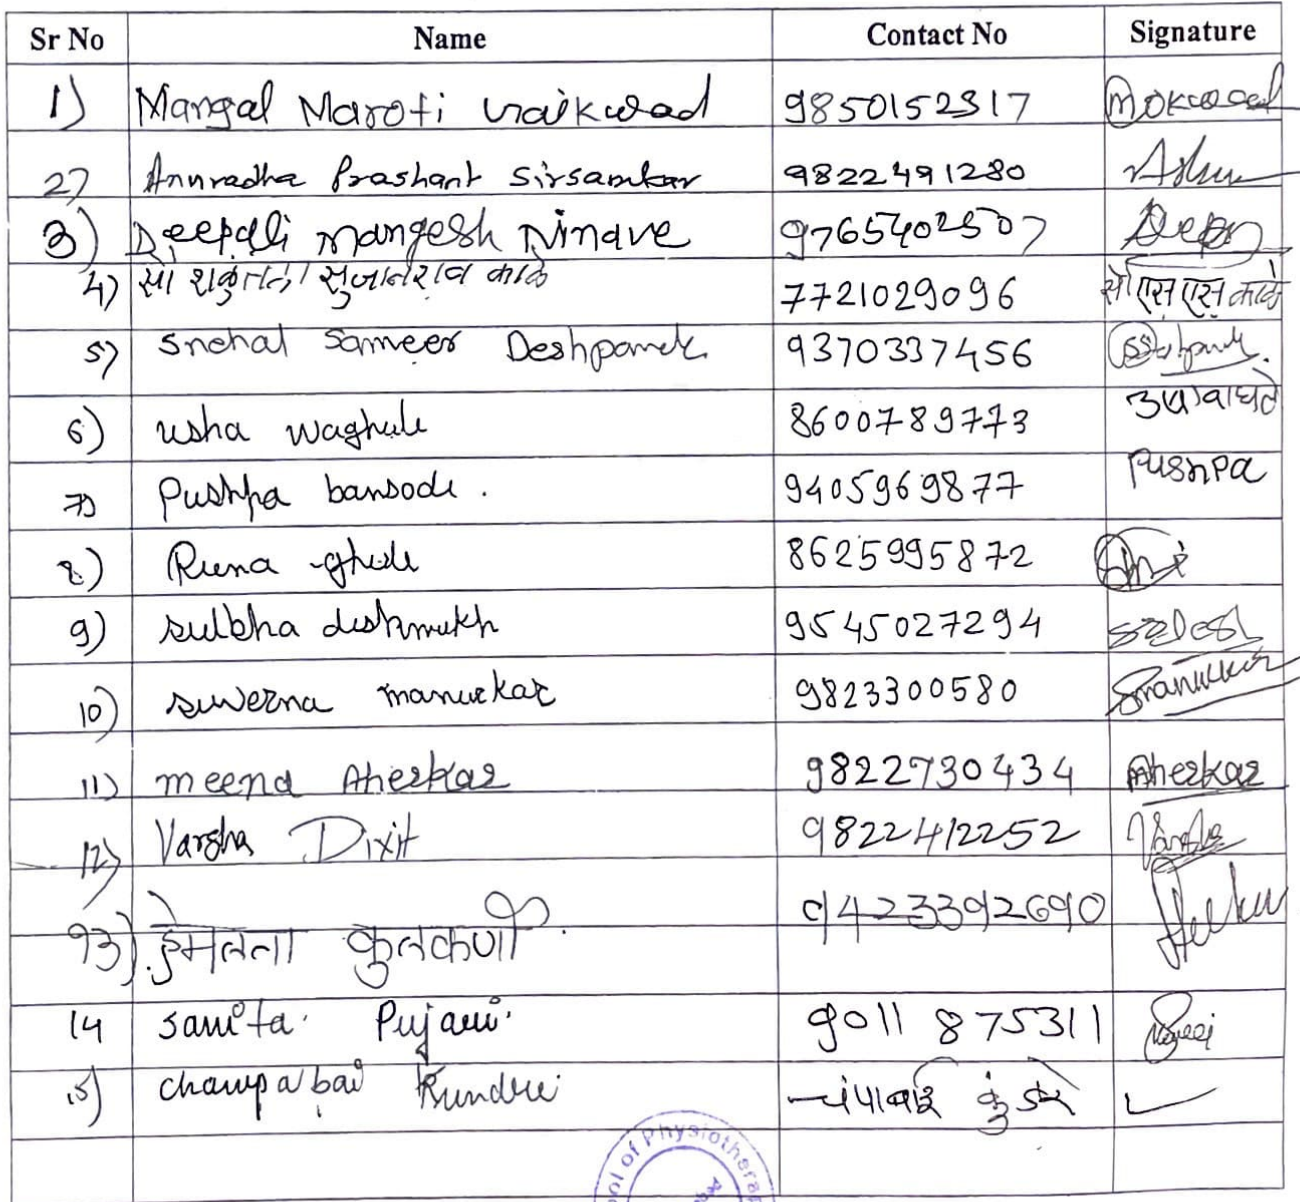 Sr No Name Contact No Signature
1) Mangal Maroti Gaikwad 9850152317
2) Anuradha Prashant Sirsamkar 9822491280
3) Deepali Mangesh Ninave 9765402507 Deepa
4) सौ शकुंतला सुजानराव काळे 7721029096 सौ एस एस काळे
5) Snehal Sameer Deshpande 9370337456
6) usha waghule 8600789773
7) Pushpa bansode. 9405969877 Pushpa
8) Runa ghule 8625995872
9) sulbha deshmukh 9545027294
10) suverna manurkar 9823300580 Smanurkar
11) meena Aherkar 9822730434 Aherkar
12) Varsha Dixit 9822412252 Varsha
१3) हेमलता कुलकर्णी 9423392690
14 sanita Pujari 9011 875311
15) champabai Kundre चंपाबाई कुंडरे
ool of Physiothera